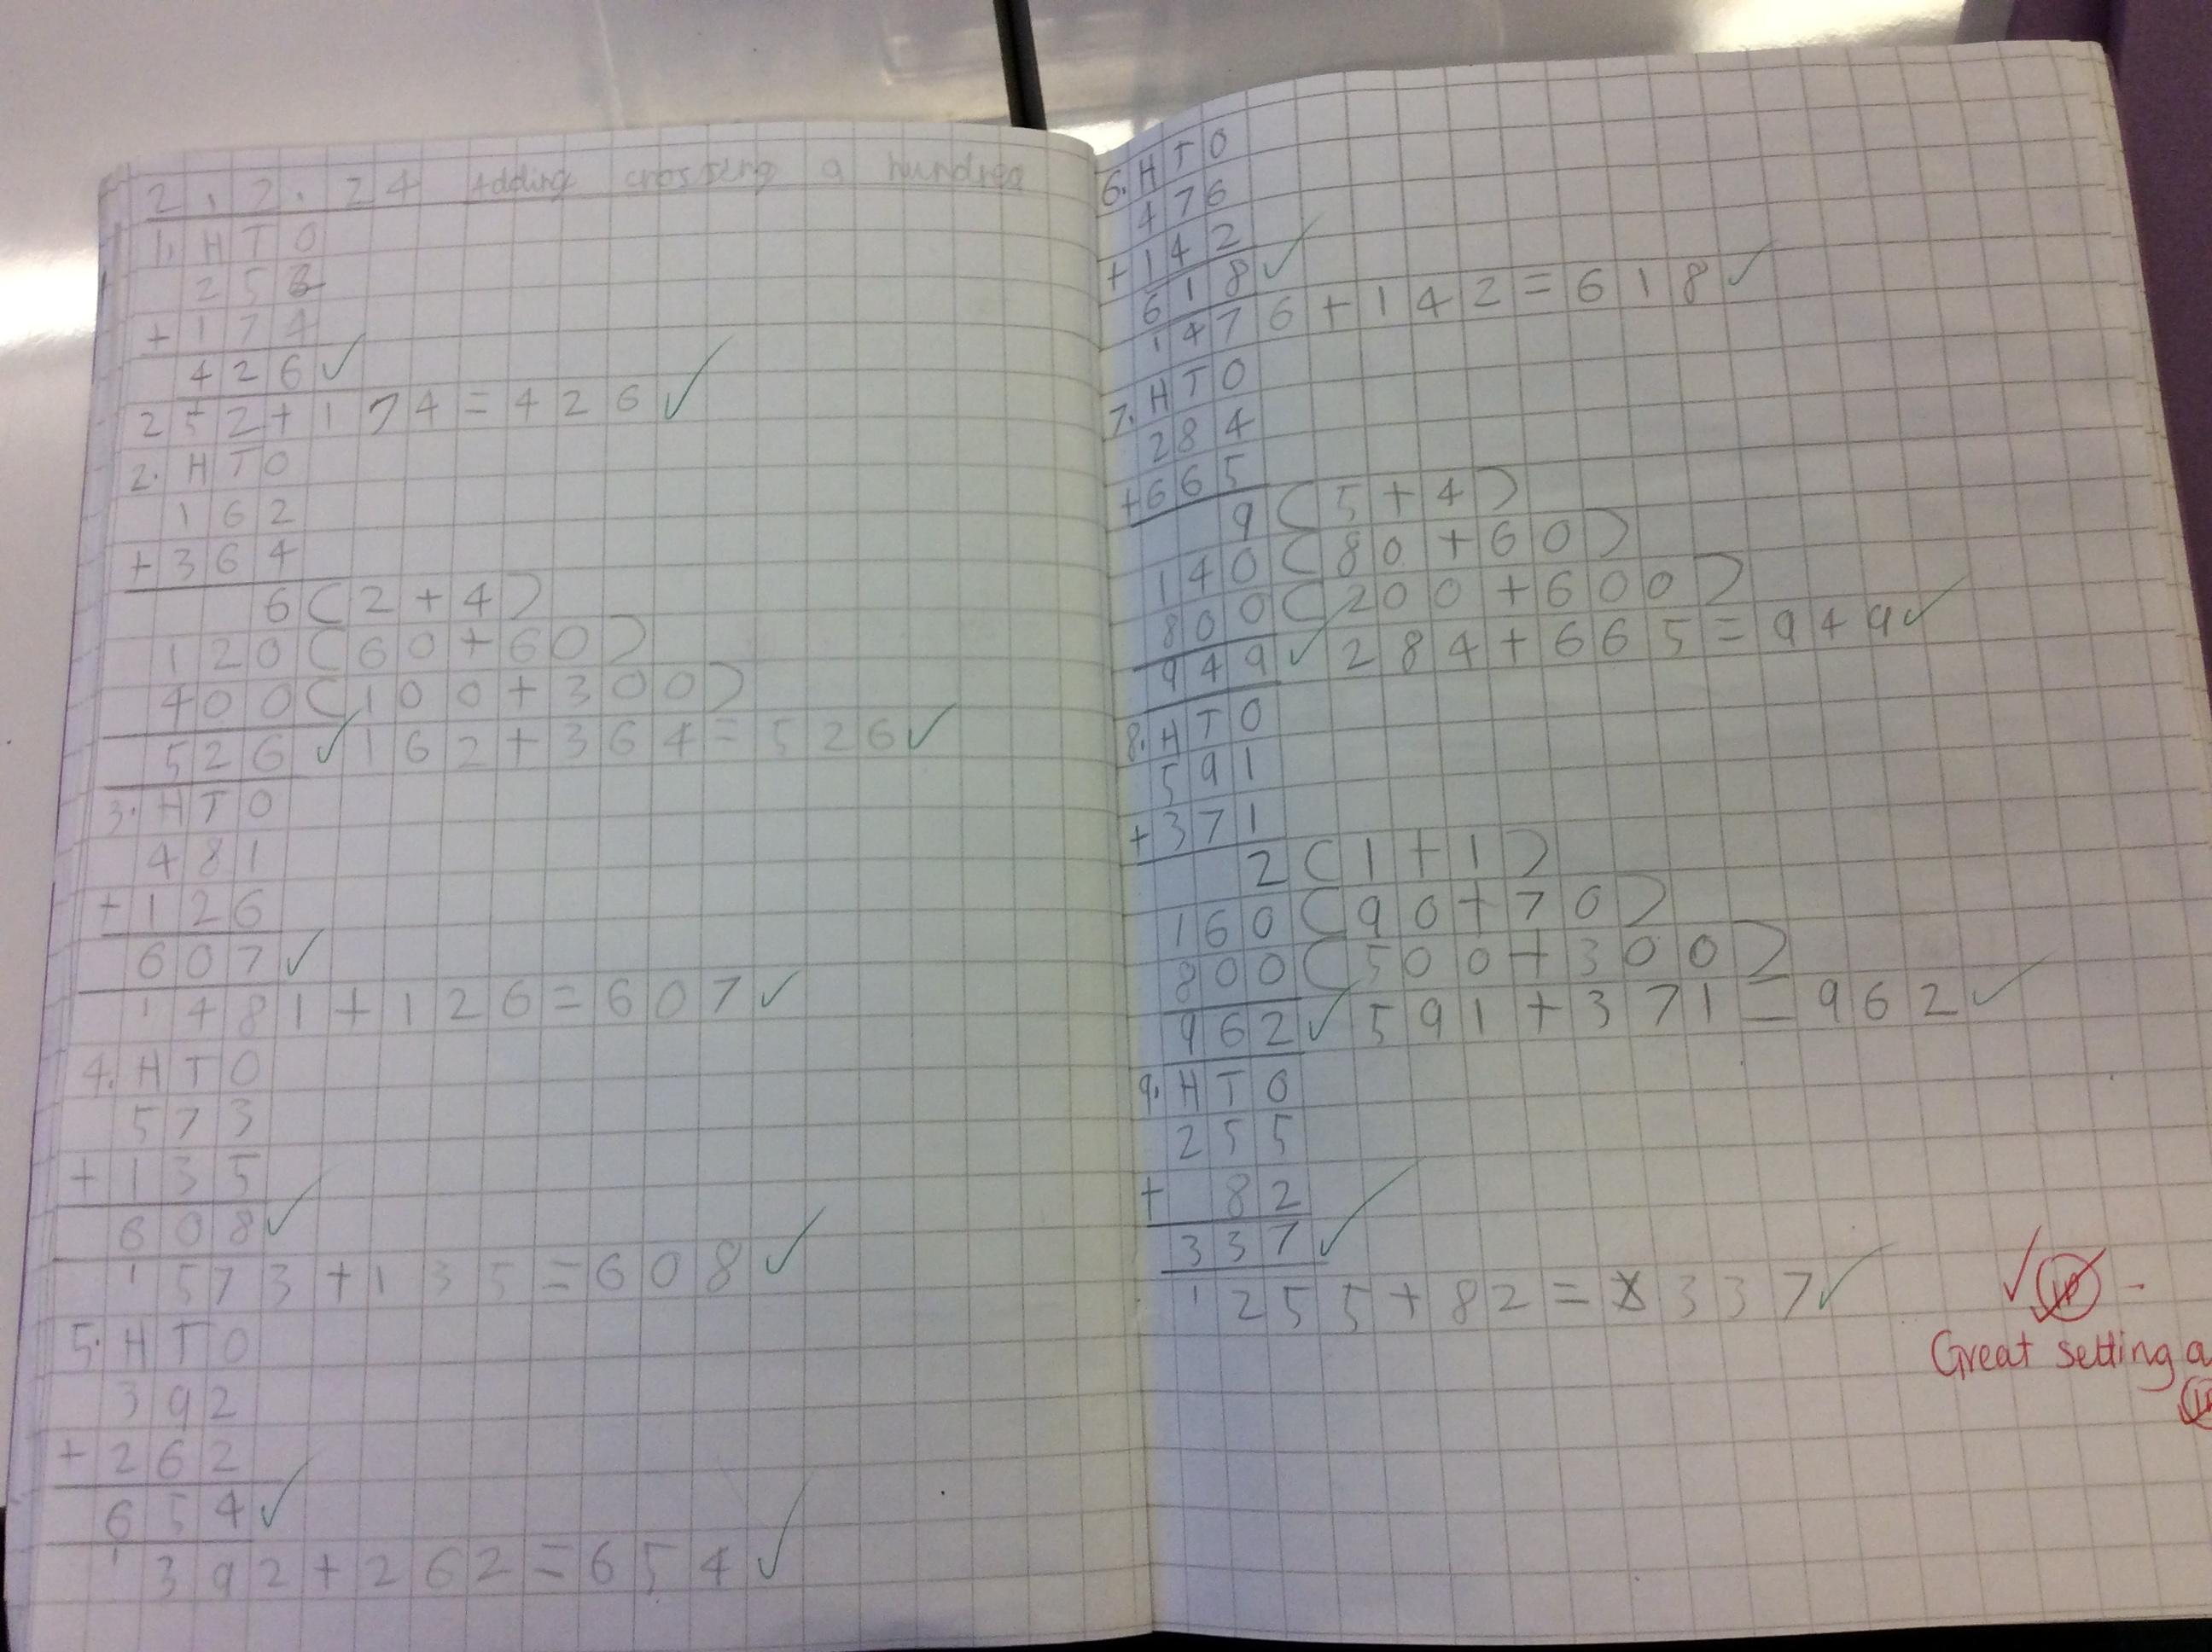 2.2.24 Adding crossing a hundred
1. H T O
252
+ 174
426 ✓
252 + 174 = 426 ✓
2. H T O
162
+ 364
6 (2 + 4)
120 (60 + 60)
400 (100 + 300)
526 ✓ 162 + 364 = 526 ✓
3. H T O
481
+ 126
607 ✓
1 481 + 126 = 607 ✓
4. H T O
573
+ 135
608 ✓
1 573 + 135 = 608 ✓
5. H T O
392
+ 262
654 ✓
1 392 + 262 = 654 ✓
6. H T O
476
+ 142
618 ✓
1 476 + 142 = 618 ✓
7. H T O
284
+ 665
9 (5 + 4)
140 (80 + 60)
800 (200 + 600)
949 ✓ 284 + 665 = 949 ✓
8. H T O
591
+ 371
2 (1 + 1)
160 (90 + 70)
800 (500 + 300)
962 ✓ 591 + 371 = 962 ✓
9. H T O
255
+ 82
337 ✓
1 255 + 82 = 337 ✓
Great setting